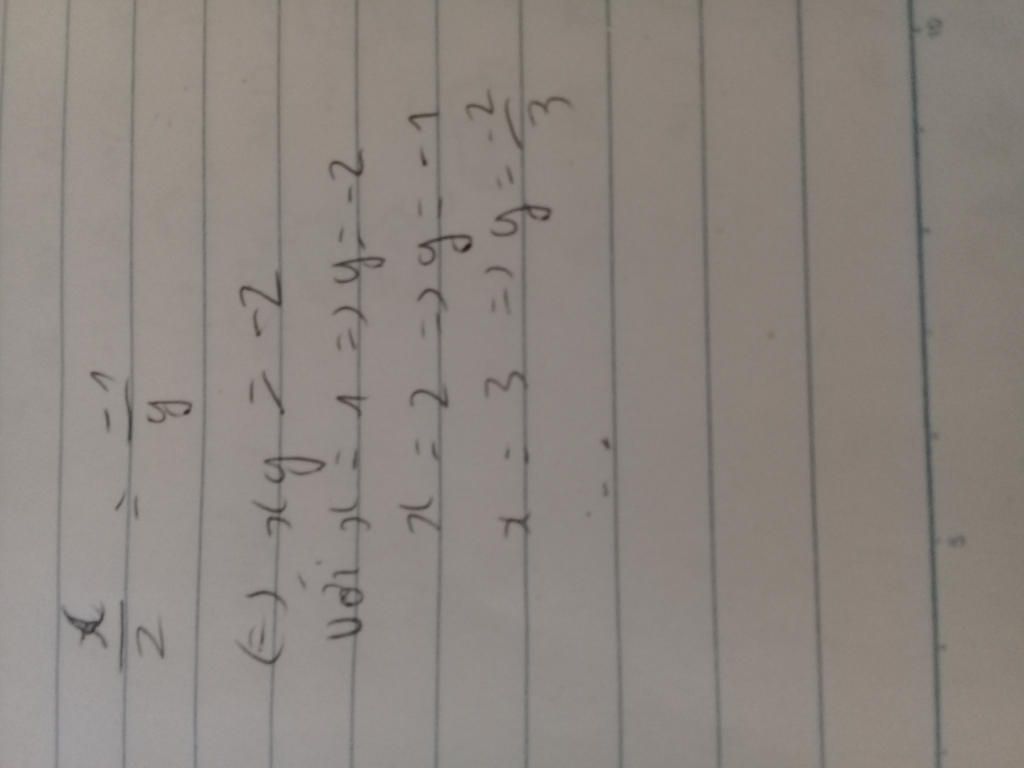 x/2 = -1/y
(=) xy = -2
với x = 1 => y = -2
x = 2 => y = -1
x = 3 => y = -2/3
...
10
5